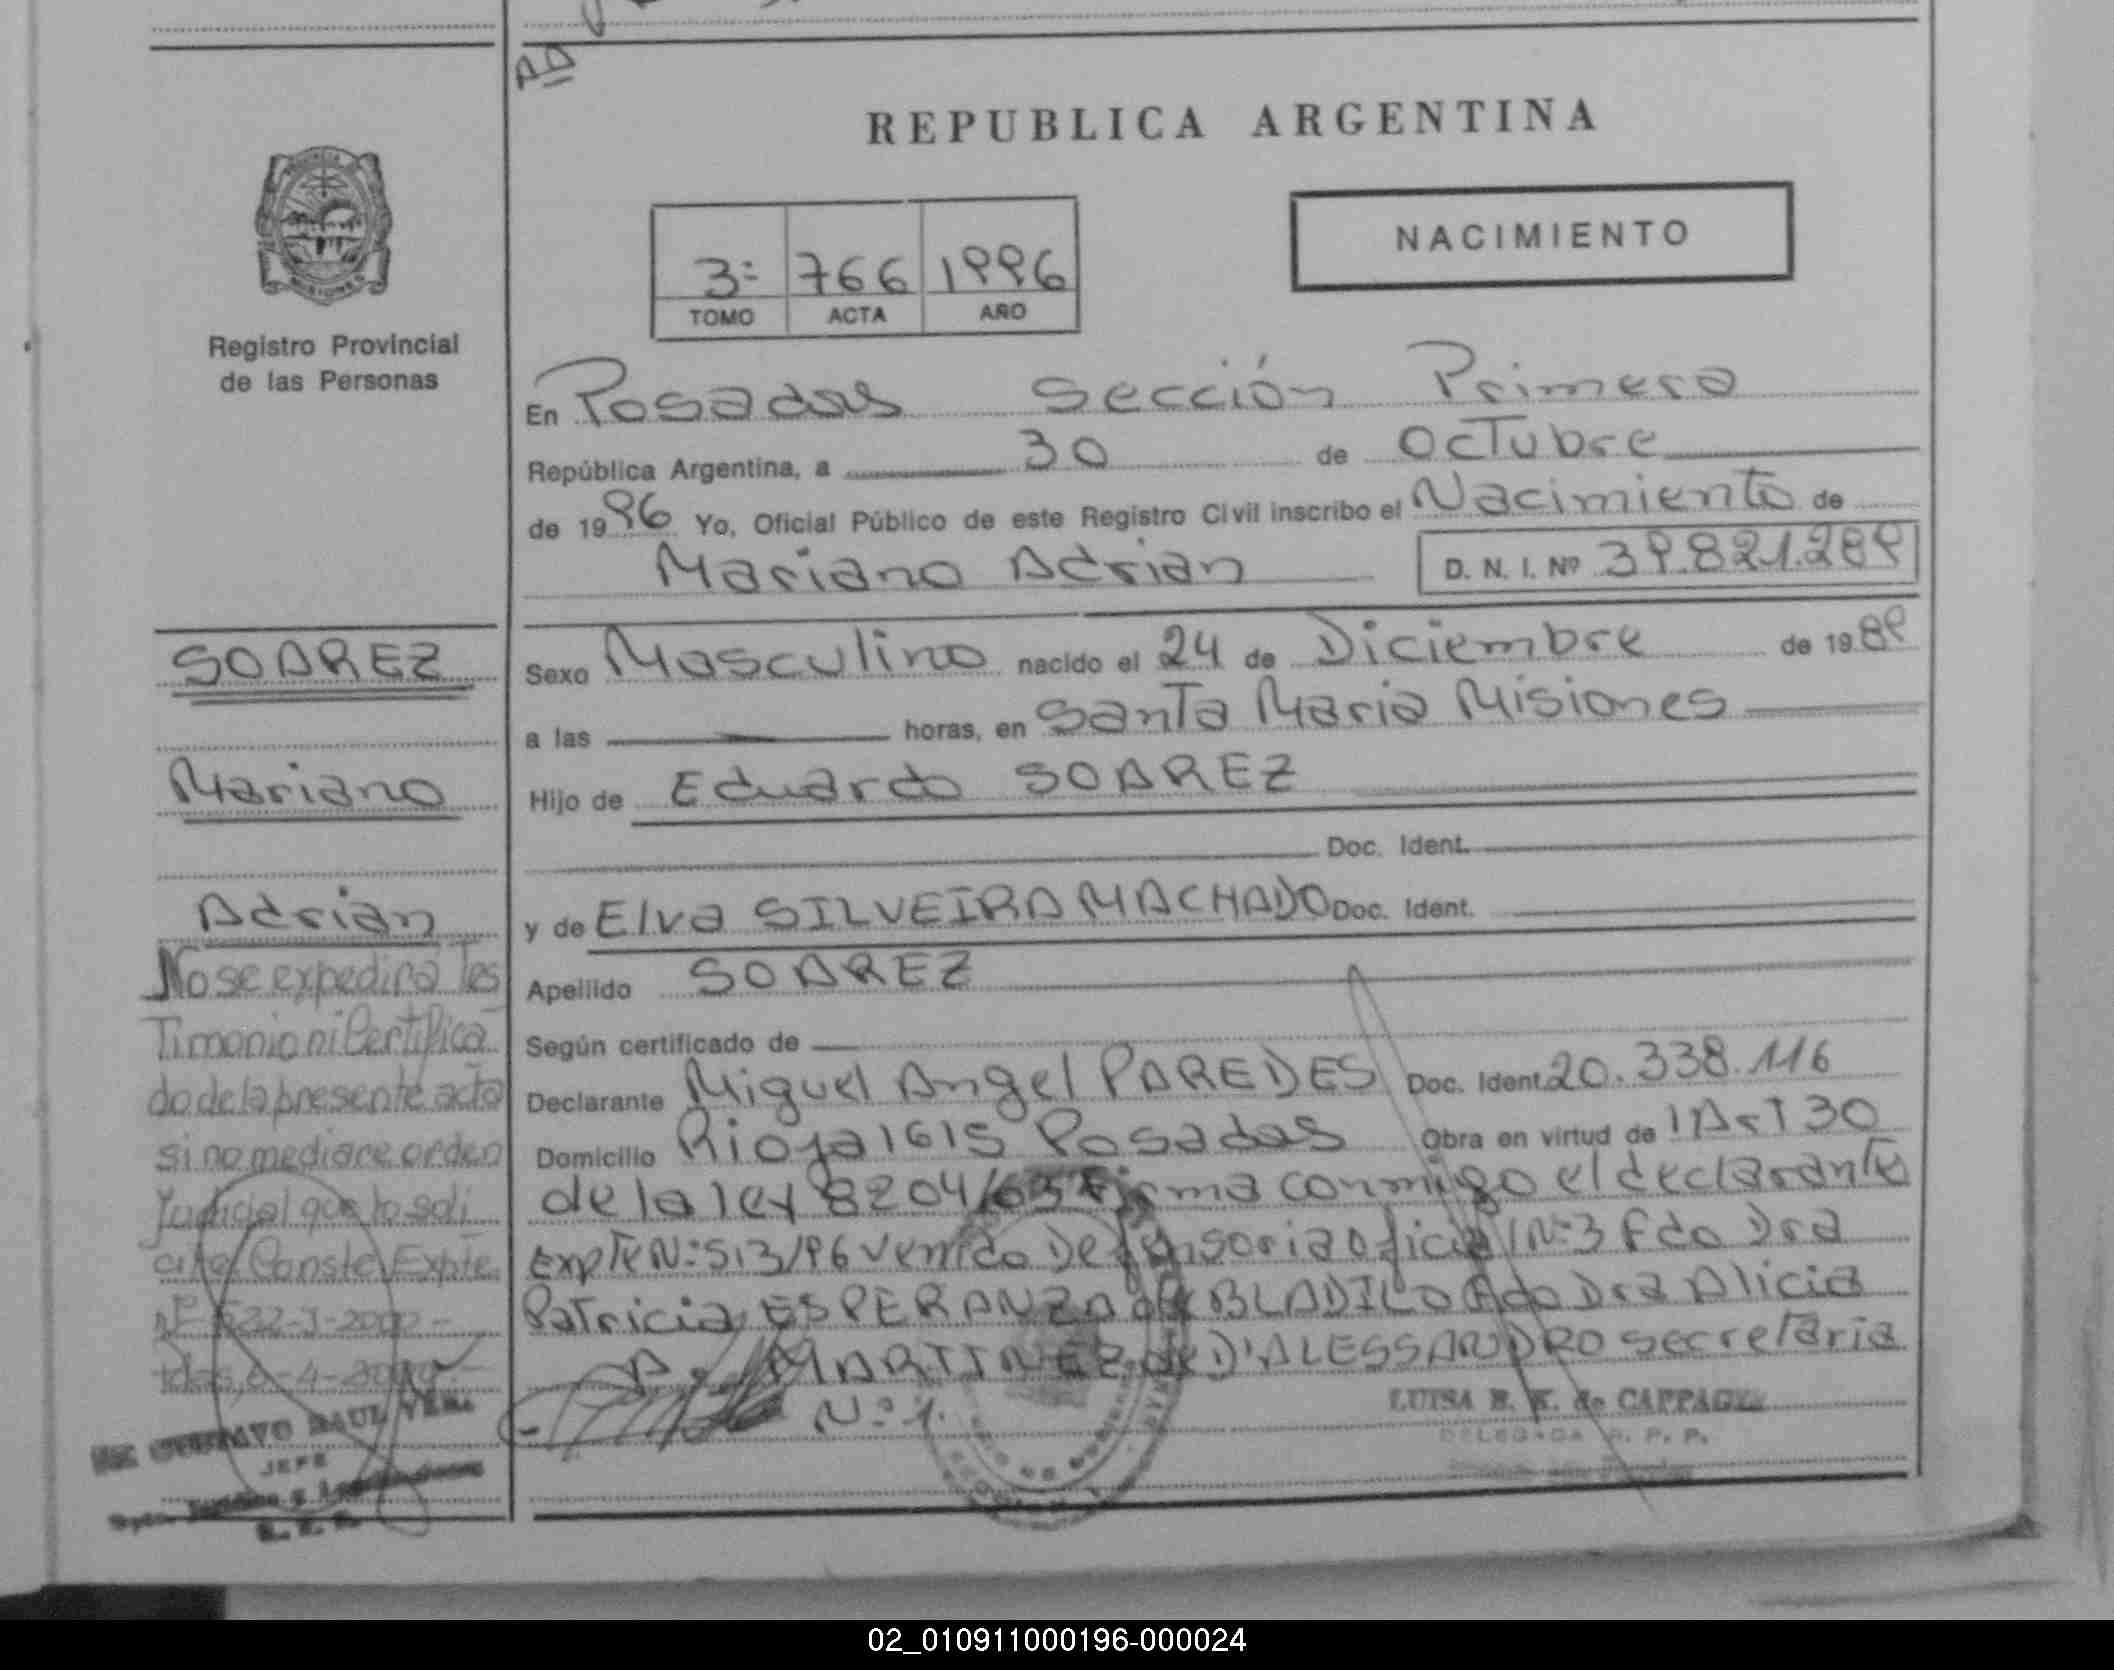 REPUBLICA ARGENTINA
NACIMIENTO
3º 766 1996
TOMO ACTA AÑO
Registro Provincial
de las Personas
En Posadas Sección Primera
República Argentina, a 30 de Octubre
de 1996 Yo, Oficial Público de este Registro Civil inscribo el Nacimiento de
Mariano Adrian D. N. I. Nº 39.821.289
SOAREZ
Mariano
Adrian
Sexo Masculino nacido el 24 de Diciembre de 1989
a las horas, en Santa Maria Misiones
Hijo de Eduardo SOAREZ
Doc. Ident.
y de Elva SILVEIRA MACHADO Doc. Ident.
Apellido SOAREZ
Según certificado de
Declarante Miguel Angel PAREDES Doc. Ident. 20.338.116
Domicilio Rioja 1615 Posadas Obra en virtud de l Art 30
de la ley 8204/63 Firma conmigo el declarante
Expte Nº 513/96 venido Defensoria Oficial Nº 3 Fdo Dra
Patricia ESPERANZA de BLADILO Fdo Dra Alicia
A. MARTINEZ de D'ALESSANDRO secretaria
Nº 1.
No se expedirá Tes
Timonio ni Certifica
do de la presente acta
si no mediare orden
Judicial que lo soli
cite Conste Expte
GUSTAVO RAUL VERA
JEFE
LUISA E. K. de
DELEGADA R. P. P.
02_010911000196-000024